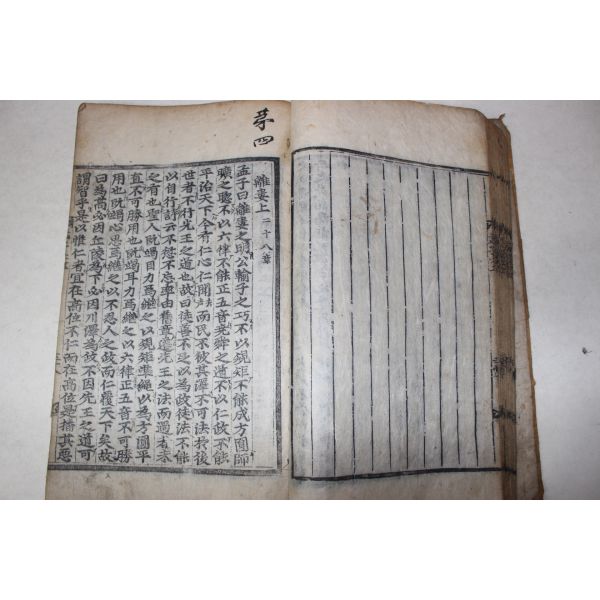 苐四
離婁上 二十八章
孟子曰離婁之明公輸子之巧不以規矩不能成方圓師
曠之聰不以六律不能正五音堯舜之道不以仁政不能
平治天下今有仁心仁聞而民不被其澤不可法於後
世者不行先王之道也故曰徒善不足以為政徒法不能
以自行詩云不愆不忘率由舊章遵先王之法而過者未
之有也聖人既竭目力焉繼之以規矩準繩以為方圓平
直不可勝用也既竭耳力焉繼之以六律正五音不可勝
用也既竭心思焉繼之以不忍人之政而仁覆天下矣故
曰為高必因丘陵為下必因川澤為政不因先王之道可
謂智乎是以惟仁者宜在高位不仁而在高位是播其惡